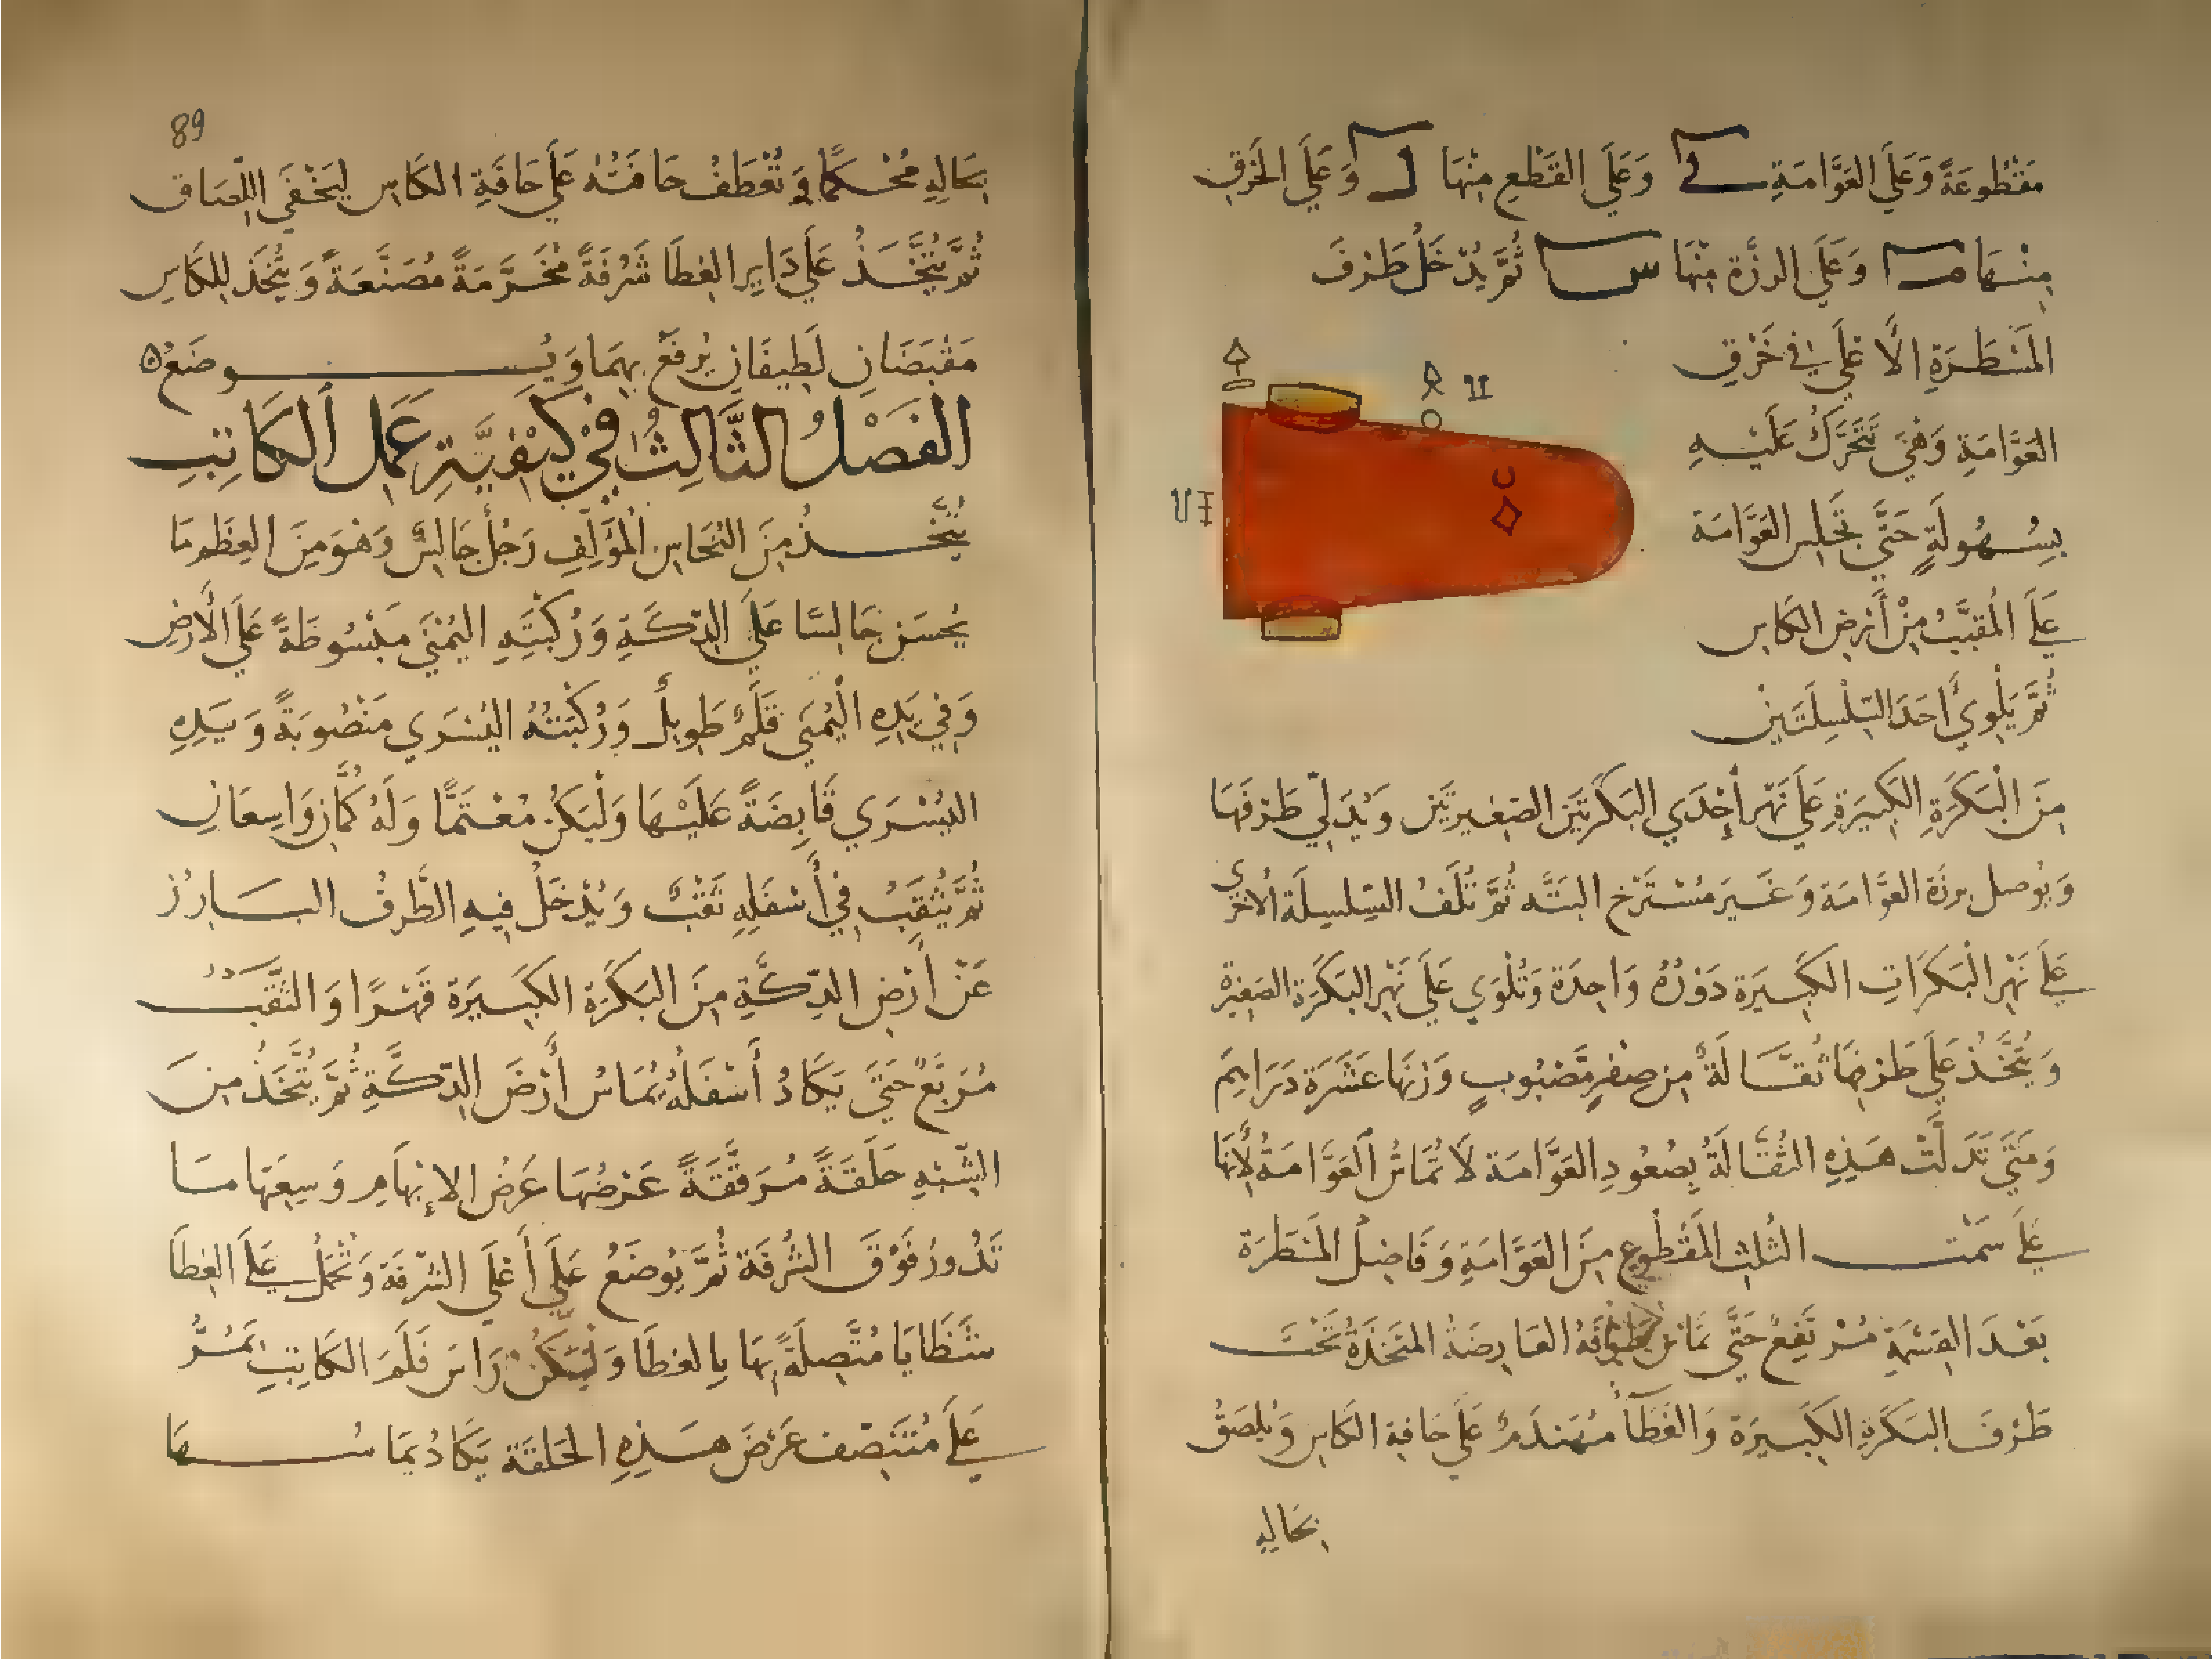 مَقْطُوعَةً وَعَلَي العَوَّامَةِ وَعَلَي القَطْعِ مِنْهَا ل وَعَلَي الخَرْقِ
مِنْهَا وَعَلَي الرزَّة مِنْهَا س ثُمَّ يُدْخَلُ طَرَفَ
المَسْطَرَةِ الأَعْلَي فِي خَرْقِ
العَوَّامَةِ وَهْيَ تَتَحَرَّكُ عَلَيْهِ
بِسُهُولَةٍ حَتَّي تَجْلِسَ العَوَّامَة
عَلَي المُقَبَّبِ مِنْ أَرْضِ الكَاسِ
ثُمَّ يَلْوِي أَحَدَ السِّلْسِلَتَيْنِ
مِنَ الْبَكَرَةِ الكَبِيرَةِ عَلَي نَهْرِ إِحْدَي البَكَرَتَيْنِ الصَّغِيرَتَيْنِ وَيُدَلِّي طَرَفَهَا
وَيُوصل برزة العَوَّامَة وَغَيرَ مُسْتَرْخ البَتَّه ثُمَّ تُلَفُّ السِّلسِلَة الأُخْرَي
عَلَي نَهْرِ الْبَكَرَاتِ الكَبِيرَة دَوْرَةً وَاحِدَة وَتُلْوَي عَلَي نَهْرِ البَكَرَةِ الصَغِيْرة
وَيُتَّخَذُ عَلَي طَرَفِهَا ثُقَّالَةٌ مِن صِفرٍ مَصْبُوبٍ وَزْنهَا عَشَرَة دَرَاهِمَ
وَمَتَي تَدَلَّتْ هَذِهِ الثُقَّالَةُ بِصُعُودِ العَوَّامَة لَا تُمَاسُّ العَوَّامَةُ لأَنَّهَا
عَلَي سَمْتِ الثُلثِ المَقْطُوعِ مِنَ العَوَّامَةِ وَفَاضِلُ المَسْطَرَة
بَعْدَ القِسْمَةِ مُرْتَفِعٌ حَتَّي تمَاسّ العَارِضَة المتَّخَذَةُ تَحْتَ
طَرَفَ البَكَرَةِ الكَبِيرَة وَالغَطَاُ مُهَندَمٌ عَلَي حَافة الكَاسِ وَيُلصَقُ
بِحَالِهِ
89
بِحَالِهِ مُحْكَمًا وَتُعْطَفُ حَافَتُهُ عَلَي حَافَةِ الكَاسِ لِيَخْفَي اللِّصَاق
ثُمَّ يُتَّخَذُ عَلَي دَايِرِ الغِطَا شَرَفَةً مُخَرَّمَةً مُصَنَّعَةً وَيُتَّخَذ لِلكَاسِ
مَقْبَضَانِ لَطِيفَانِ يُرفَعُ بِهمَا وَيُوضَعُ ه
الفَصْلُ الثَّالِثُ فِي كَيْفِيَّةِ عَمَلِ الْكَاتِبِ
يُتَّخَذُ مِنَ النُحَاسِ المُؤَلَّفِ رَجُلٌ جَالِسٌ وَهْوَ مِنَ العِظَمِ مَا
يُحسَن جَالسًا عَلَي الدِّكَّةِ وَرُكْبَتِهِ اليُمْنَي مَبْسُوطَةً عَلَي الأَرْضِ
وَفِي يَدِهِ الْيُمْنَي قَلَمٌ طَوِيلٌ وَرُكْبَتُهُ اليُسْرَي مَنْصُوبَةً وَيَدِهِ
اليُسْرَي قَابِضَةً عَلَيْهَا وَلْيَكُنْ مُعْتَمًّا وَلَهُ كُمَّانِ وَاسِعَانِ
ثُمَّ يُثقَبُ فِي أَسْفَلِهِ ثَقْبٌ وَيُدْخَلُ فِيهِ الطَّرفُ البَارِزُ
عَنْ أَرْضِ الدِّكَّةِ مِنَ البَكَرَة الكَبِيرَة قَهْرًا وَالثَقْبُ
مُرَبَّعٌ حَتَّي يَكَادُ أَسْفَلُهُ يُمَاسُ أَرْضَ الدِّكَّةِ ثُمَّ يُتَّخَذُ مِنَ
الشَّبَهِ حَلَقَةً مُرَقَّقَةً عَرْضُهَا عَرْضُ الإِبْهَامِ وَسِعَتهَا مَا
تَدُورُ فَوْقَ الشُرفَة ثُمَّ يُوضَعُ عَلَي أَعْلَي الشُرفَة وَتُحْمَلُ عَلَي الغِطَا
شَظَايَا مُتَّصِلَةً بِهَا بِالغطَا وَلْيَكُنْ رَاسَ قَلَمَ الكَاتِبِ يَمُرُّ
عَلَي مُنْتَصِف عَرْضَ هَذِهِ الحَلقَة يَكَادُ يمَاسُهَا